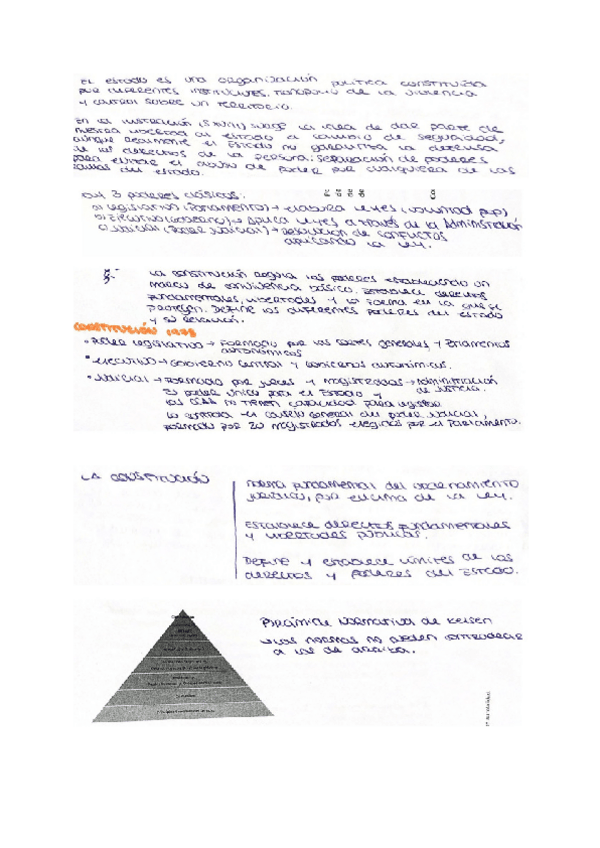 El estado es una organización política constituida
por diferentes instituciones, monopolio de la violencia
y control sobre un territorio.
En la ilustración (S XVIII) surge la idea de dar parte de
nuestra libertad al estado a cambio de seguridad,
aunque realmente el Estado no garantiza la defensa
de los derechos de la persona: separación de poderes
para evitar el abuso de poder por cualquiera de las
del estado.
3 poderes clásicos:
a) legislativo (parlamento) → elabora leyes (voluntad pop)
b) Ejecutivo (gobierno) → aplica leyes a través de la Administración
c) Judicial (Poder Judicial) → Resolución de conflictos
aplicando la ley.
La constitución regula los poderes estableciendo un
marco de convivencia básico. Establece derechos
fundamentales, libertades y la forma en la que se
protegen. Define los diferentes poderes del estado
y su relación.
CONSTITUCIÓN 1978
• Poder legislativo → Formado por las cortes generales, y Parlamentos
autonómicos
• Ejecutivo → Gobierno central y gobiernos autonómicos.
• Judicial → Formado por jueces y magistrados → Administración
de Justicia.
Es poder único para el Estado y
las CCAA no tienen capacidad para legislar
Lo gestiona el consejo general del poder judicial,
formado por 20 magistrados elegidos por el Parlamento.
LA CONSTITUCIÓN
Norma fundamental del ordenamiento
jurídico, por encima de la ley.
Establece derechos fundamentales
y libertades públicas.
Define y establece límites de los
derechos y poderes del Estado.
Pirámide Normativa de Kelsen
normas no pueden contradecir
a las de arriba.